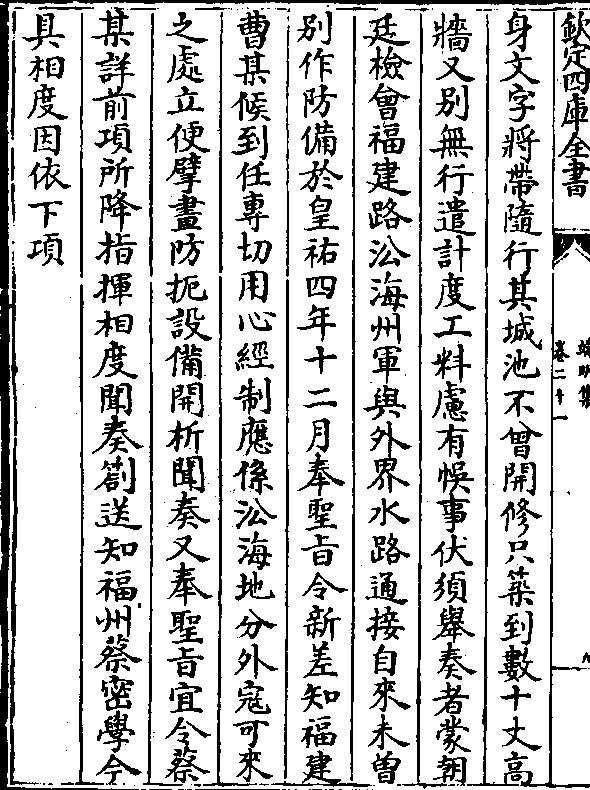 欽定四庫全書
端明集
卷二十一
九
身文字將帶隨行其城池不曾開修只築到數十丈高
牆又別無行遣計度工料慮有悞事伏須舉奏者蒙朝
廷檢會福建路㳂海州軍與外界水路通接自來未曾
別作防備於皇祐四年十二月奉聖旨令新差知福建
曹某候到任專切用心經制應係㳂海地分外寇可來
之處立便擘畫防扼設備開析聞奏又奉聖旨宜令蔡
某詳前項所降指揮相度聞奏劄送知福州蔡密學今
具相度因依下項